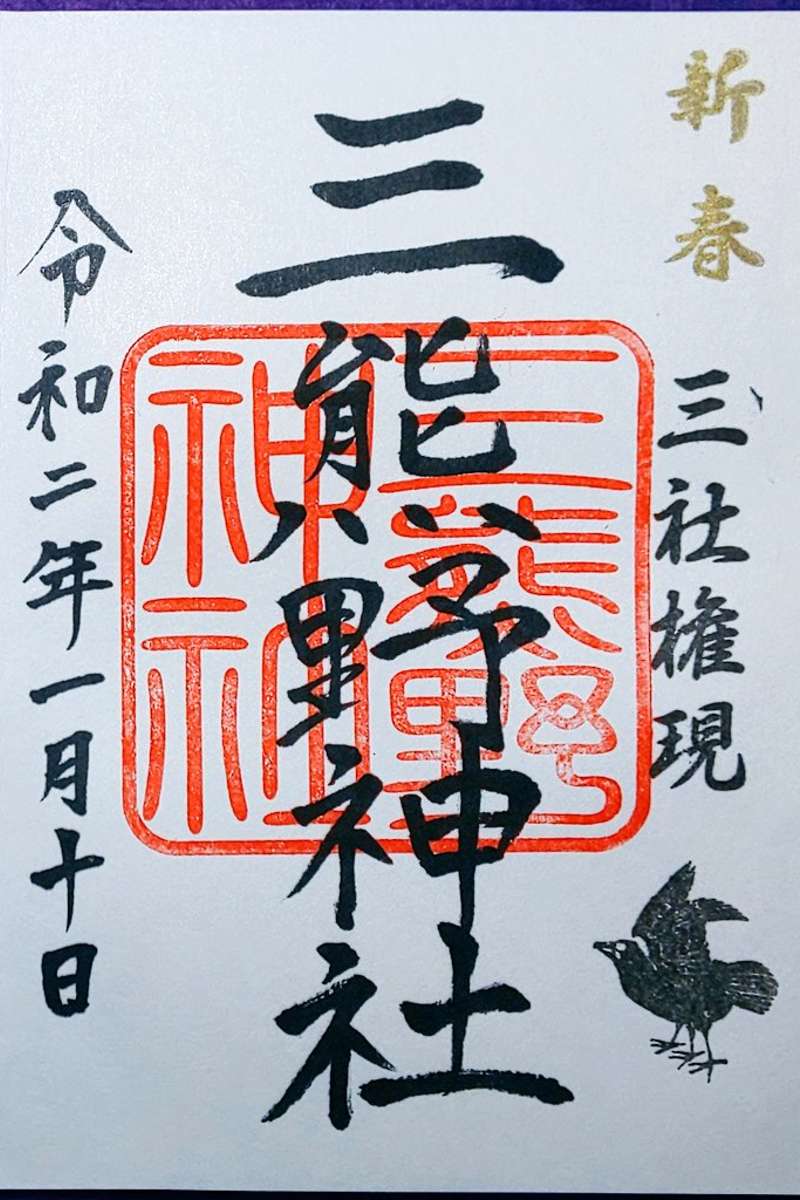 新春
三社権現
三熊野神社
三熊野神社
令和二年一月十日